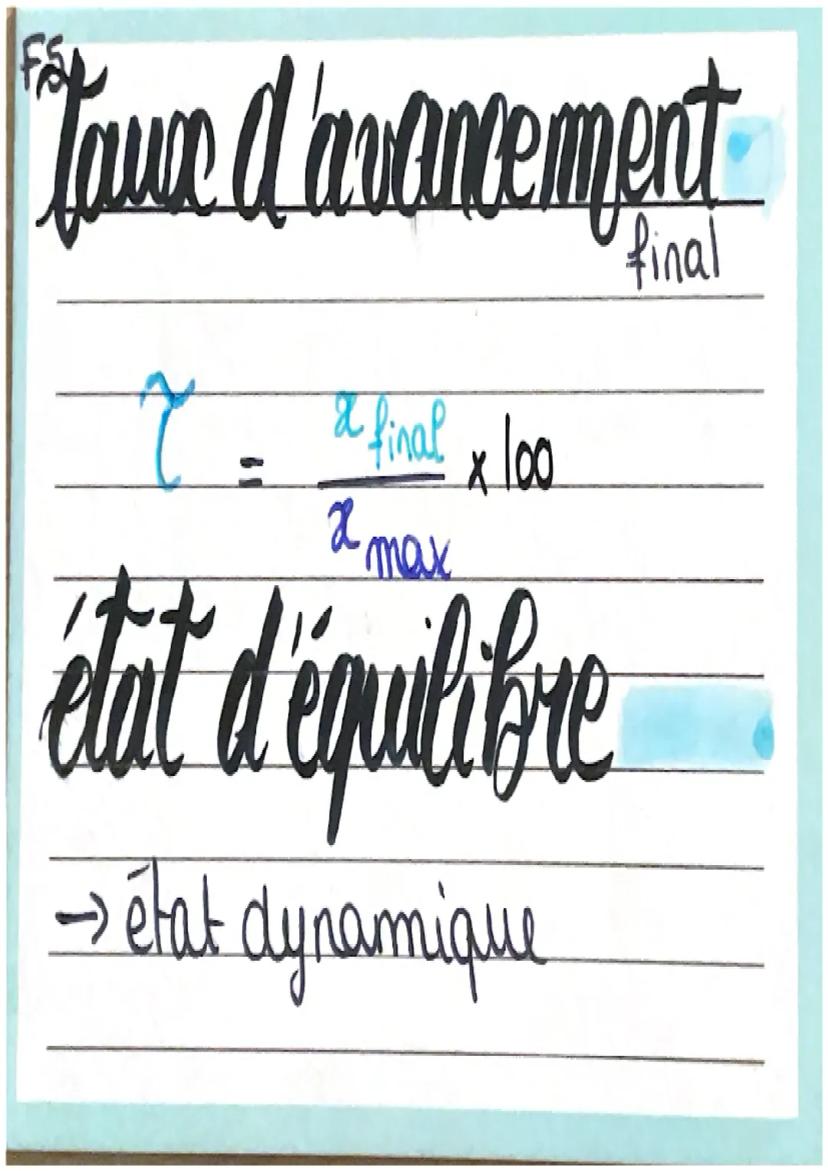 FS
taux d'avancement
final
τ = x final / x max × 100
état d'équilibre
→ état dynamique